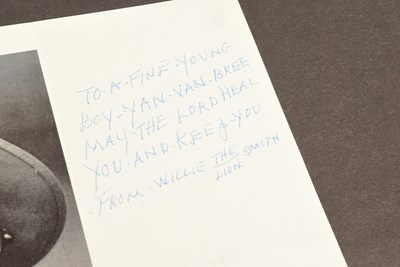 TO·A·FINE·YOUNG
BOY·YAN·VAN·BREE
MAY·THE·LORD HEAL
YOU·AND·KEEP·YOU
·FROM·WILLIE THE LION SMITH